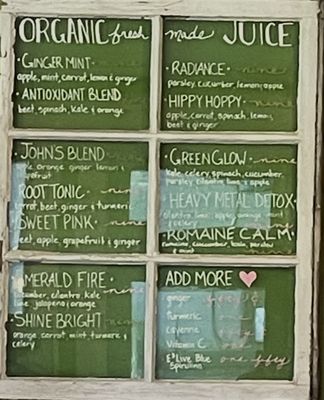 ORGANIC fresh made JUICE
GINGER MINT · nine
apple, mint, carrot, lemon & ginger
ANTIOXIDANT BLEND
beet, spinach, kale & orange
RADIANCE · nine
parsley, cucumber, lemon, apple
HIPPY HOPPY · nine
apple, carrot, spinach, lemon,
beet & ginger
JOHN'S BLEND
orange ginger lemon &
ROOT TONIC · nine
beet, ginger & turmeric
SWEET PINK · nine
beet, apple, grapefruit & ginger
GREEN GLOW · nine
kale, celery, spinach, cucumber,
parsley, cilantro, lime & apple
HEAVY METAL DETOX
cilantro, lime, apple, orange, mint
& celery
ROMAINE CALM
romaine, cucumber, kale, parsley
& mint
EMERALD FIRE ·
cucumber, cilantro, kale nine
lime, jalapeno & orange
SHINE BRIGHT · nine
orange, carrot, mint, turmeric &
celery
ADD MORE
ginger
Turmeric one
Cayenne
Vitamin C one
E3 Live Blue one fifty
Spirulina